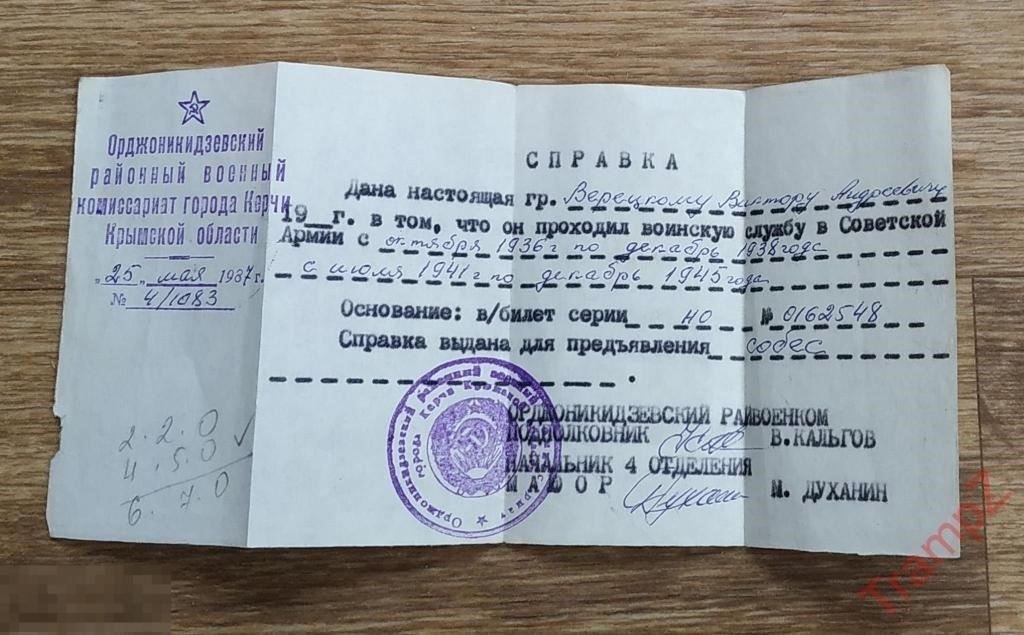 Орджоникидзевский
районный военный
комиссариат города Керчи
Крымской области
"25" мая 1987 г.
№ 4/1083
2.2.0
4.5.0
6.7.0
СПРАВКА
Дана настоящая гр. Верецкому Виктору Андреевичу
19__г. в том, что он проходил воинскую службу в Советской
Армии с октября 1936г по декабрь 1938года
с июля 1941г по декабрь 1945года
Основание: в/билет серии НО № 0162548
Справка выдана для предъявления собес
ОРДЖОНИКИДЗЕВСКИЙ РАЙВОЕНКОМ
ПОДПОЛКОВНИК В.КАЛЬГОВ
НАЧАЛЬНИК 4 ОТДЕЛЕНИЯ
МАЙОР Духанин М. ДУХАНИН
Орджоникидзевский районный военный
города Керчи Крымской
TrampZ